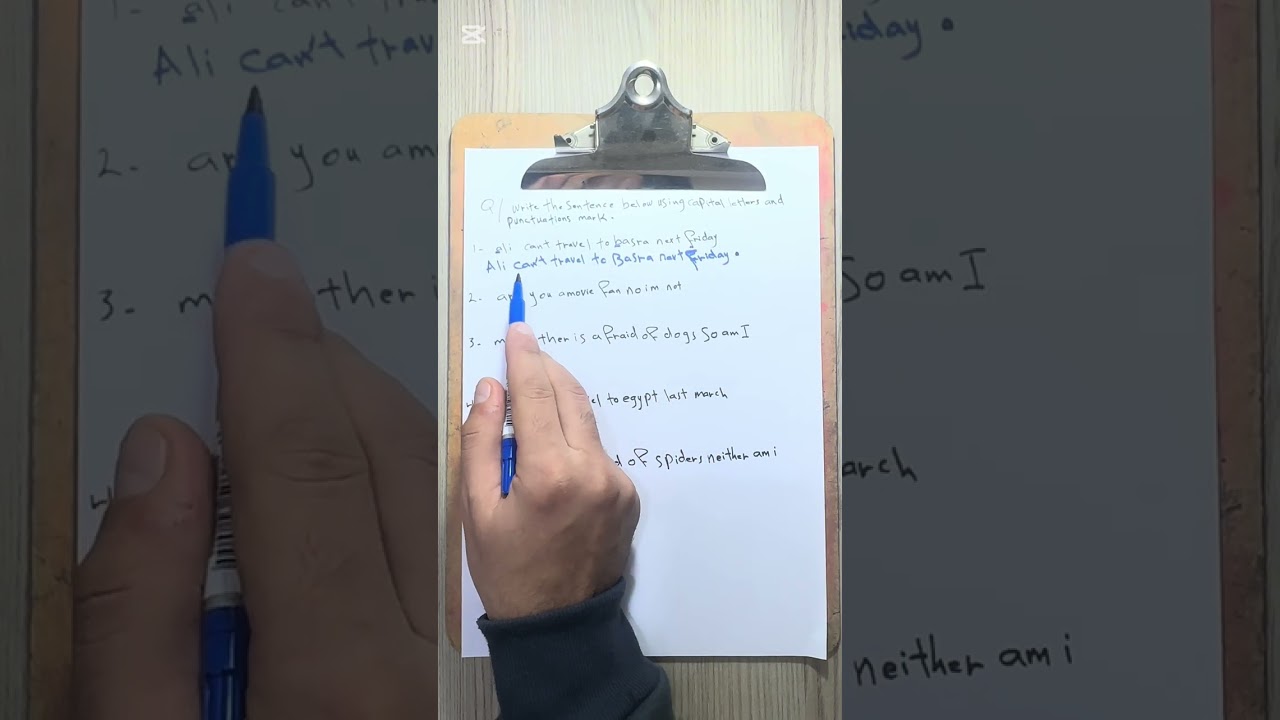 Q/ Write the Sentence below using capital letters and
punctuations mark.
1- ali cant travel to basra next friday
Ali can't travel to Basra next Friday.
2. are you a movie fan no im not
3. m ther is afraid of dogs So am I
to egypt last march
of spiders neither am i